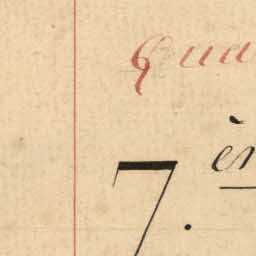 Qua
7.èm